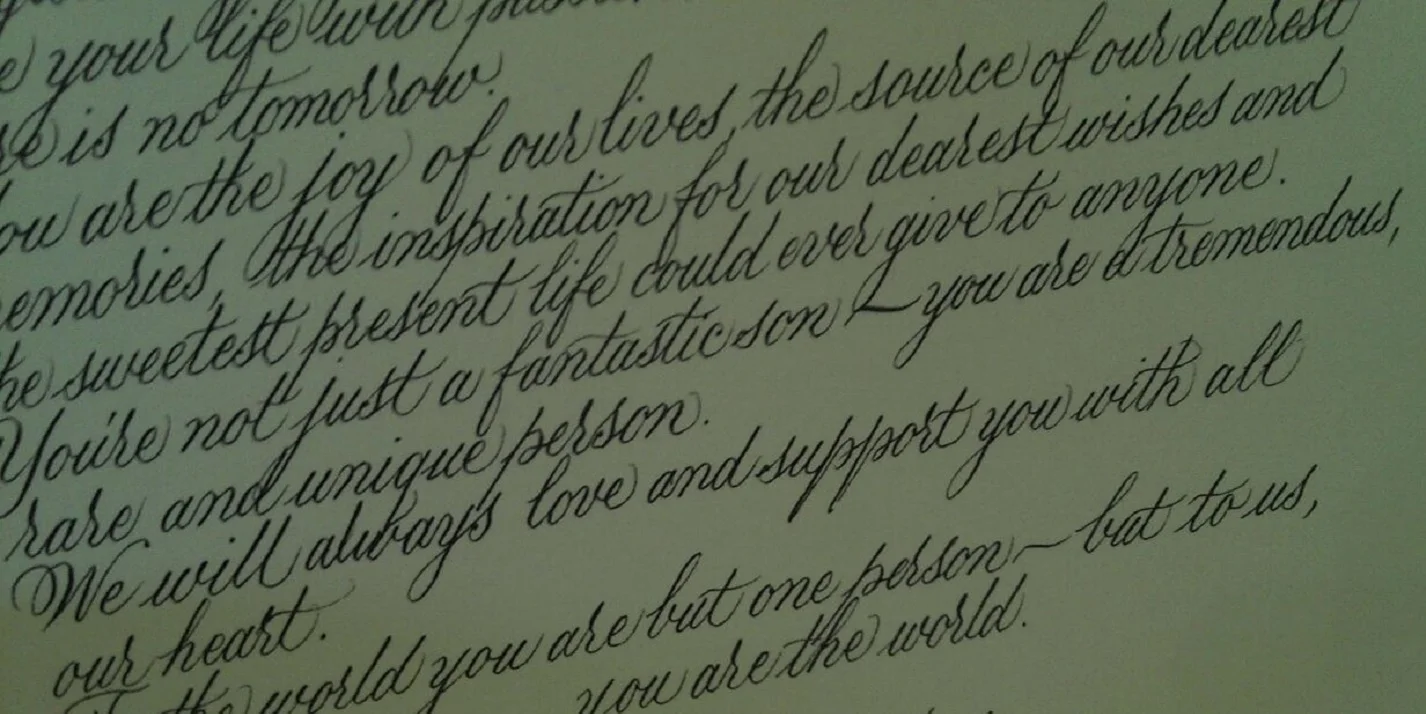 your life with
is no tomorrow.
ou are the joy of our lives, the source of our dearest
emories, the inspiration for our dearest wishes and
he sweetest present life could ever give to anyone.
You're not just a fantastic son – you are a tremendous,
rare and unique person.
We will always love and support you with all
our heart.
To the world you are but one person – but to us,
you are the world.